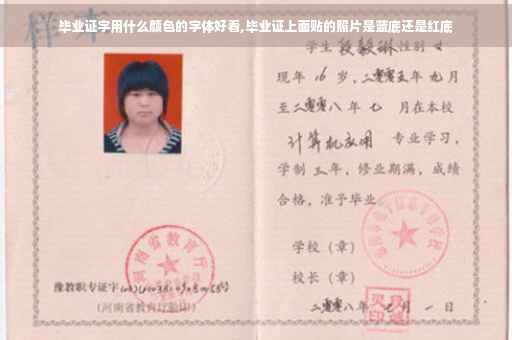 毕业证字用什么颜色的字体好看,毕业证上面贴的照片是蓝底还是红底
样本
学生 段毅琳 性别 女
现年 16 岁,二零零五年 九月
至二零零八年 七 月在本校
计算机应用 专业学习,
学制 三 年,修业期满,成绩
合格,准予毕业
学校(章)
校长(章)
河南省教育厅
豫教职专证字
(河南省教育厅验印)
二零零八年 七 月 一 日